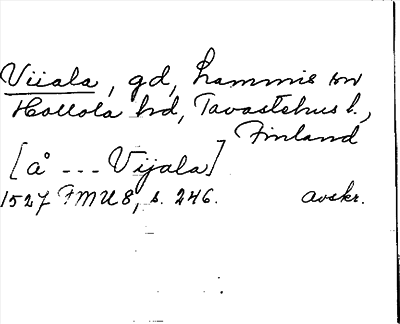 Viiala, gd, Lammis sn
Hollola hd, Tavastehus l.,
Finland
[å --- Vijala]
1527 FMU 8, s. 246. avskr.